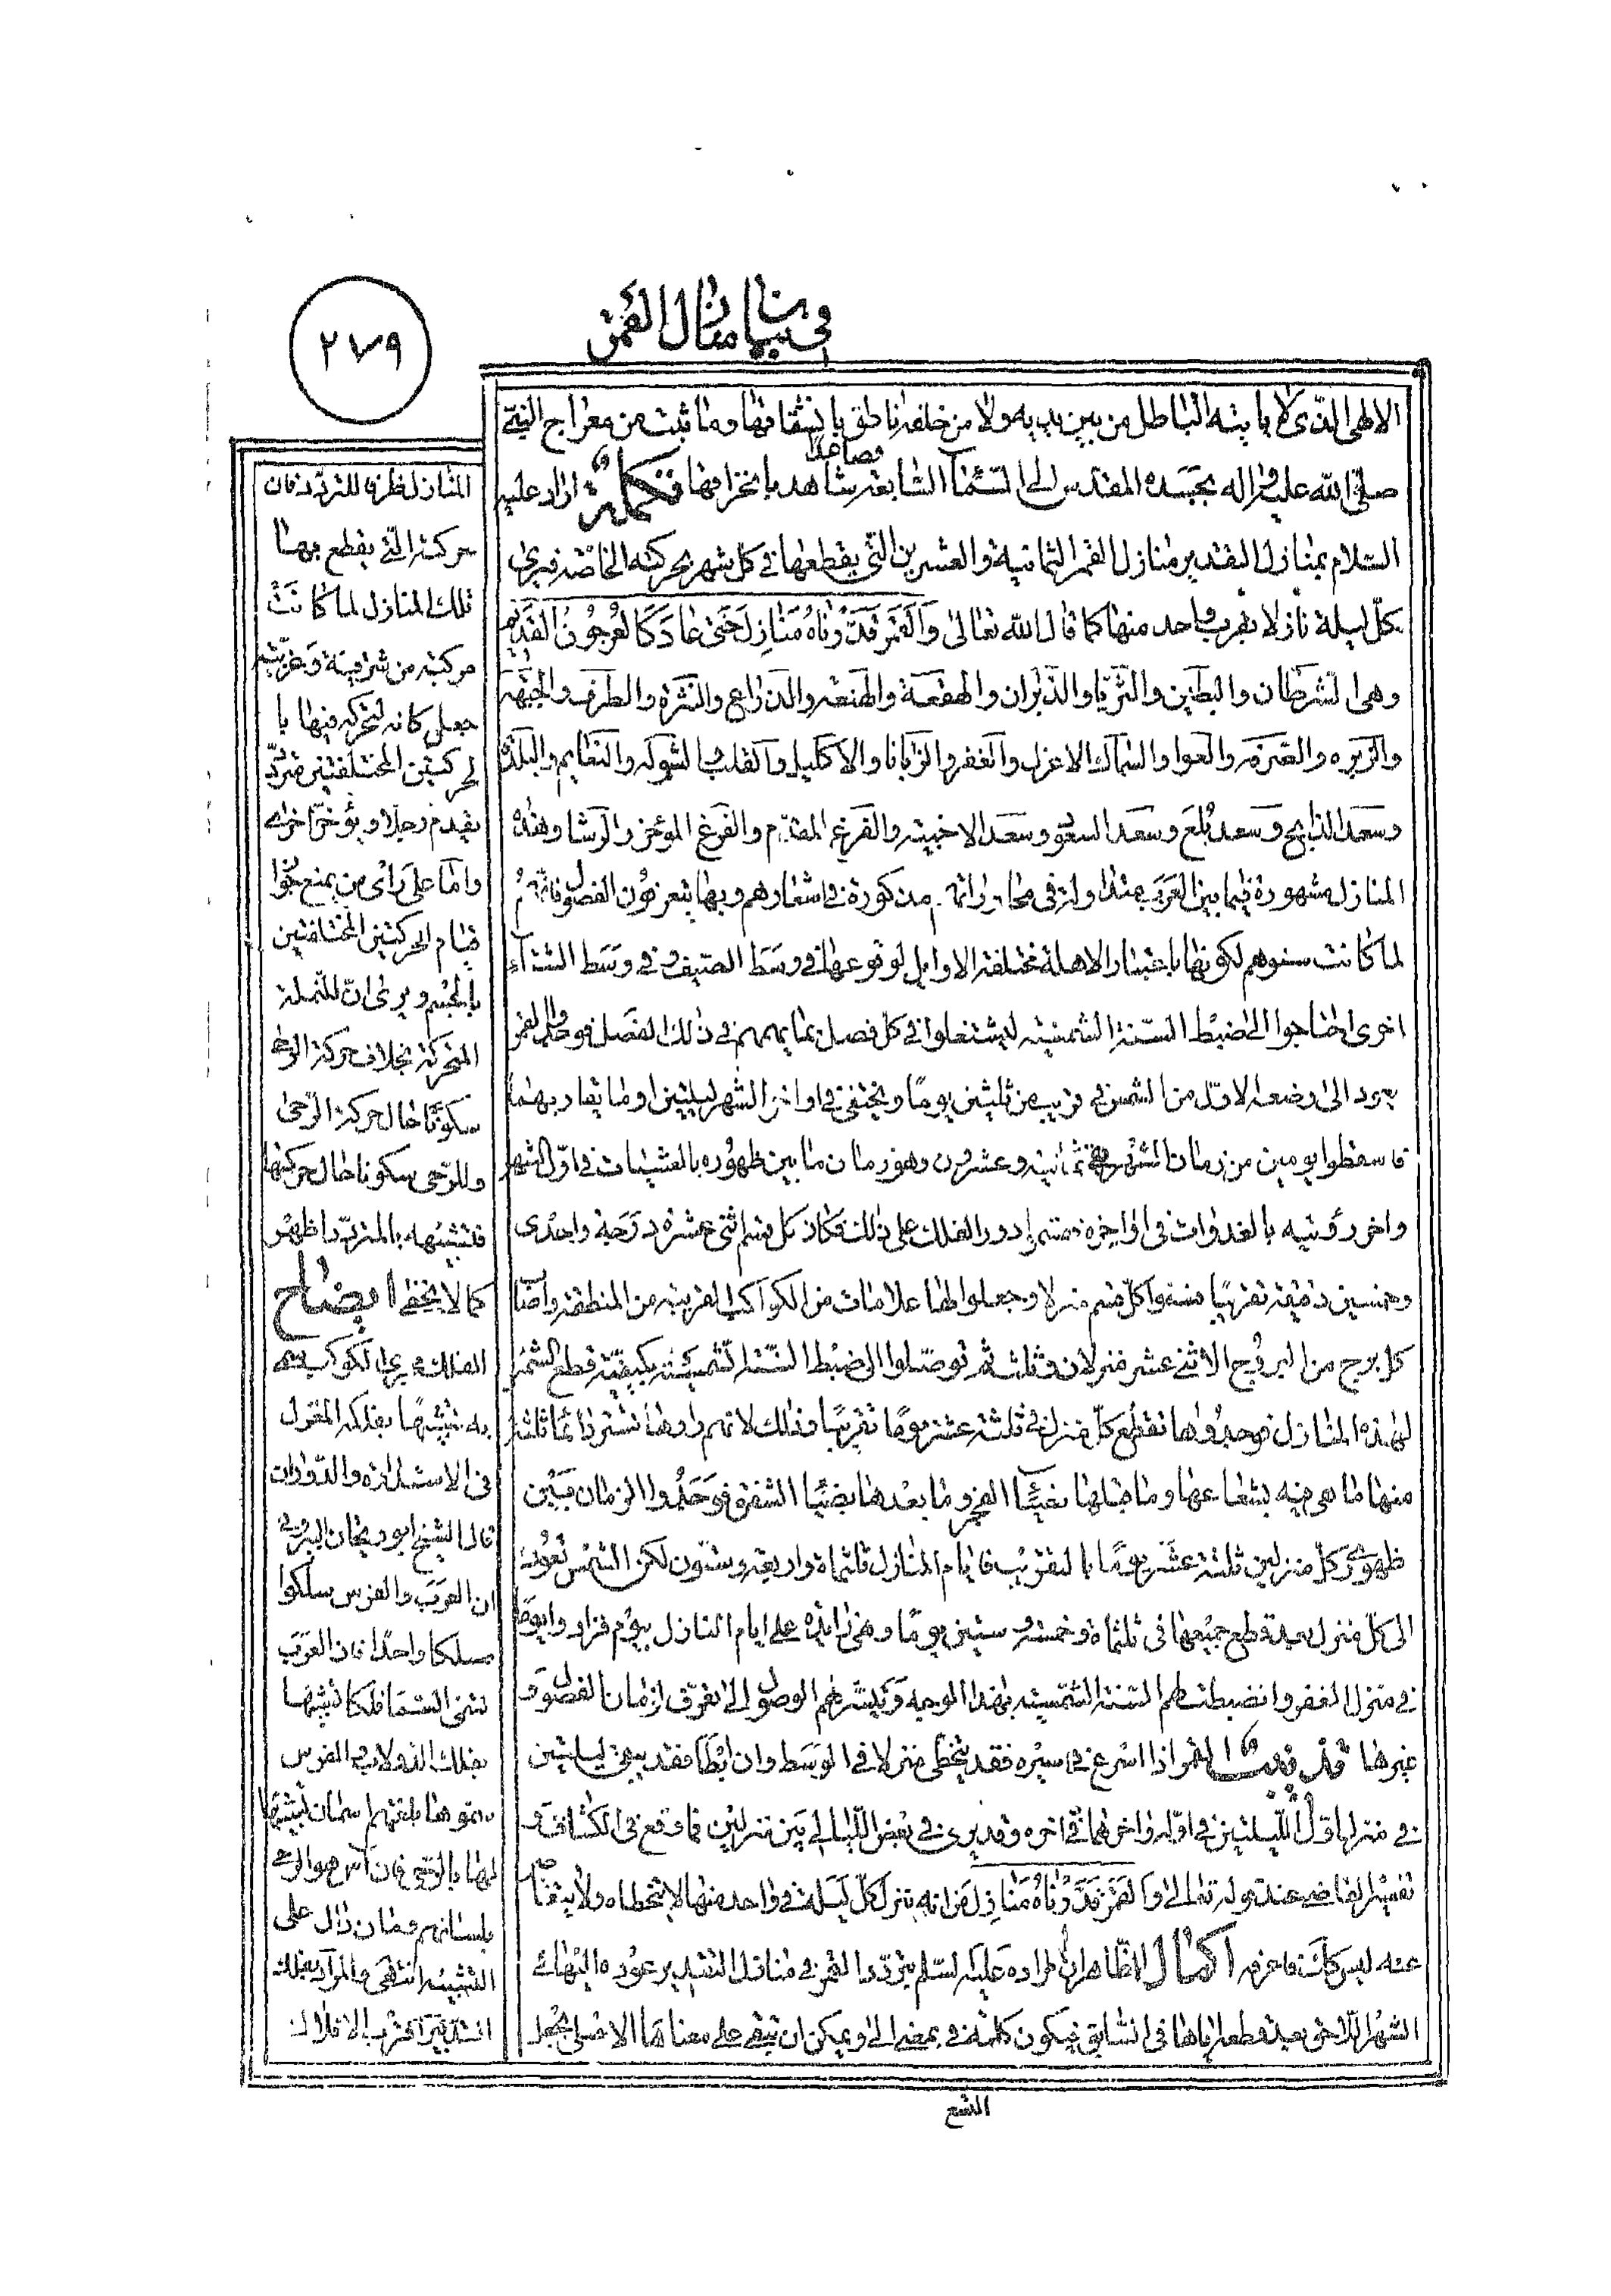 في بيان منازل القمر
٢٧٩
الالهى الذى لا ياتيه الباطل من بين يديه ولا من خلفه ناطق بانشقاقها وما ثبت من معراج النبي
صلى الله عليه واله بجسده المقدس الى السماء السابعة فصاعدا شاهد بانخراقها تكملة اراد عليه
السلام بمنازل التقدير منازل القمر الثمانية والعشرين التي يقطعها في كل شهر بحركته الخاصة فيرى
كل ليلة نازلا بقرب واحد منها كما قال الله تعالى والقمر قدرناه منازل حتى عاد كالعرجون القديم
وهى الشرطان والبطين والثريا والدبران والهقعة والهنعه والذراع والنثرة والطرف والجبهة
والزبره والصرفه والعوا والسماك الاعزل والغفر والزبانا والاكليل والقلب والشوله والنعايم والبلدة
وسعد الذابح وسعد بلع وسعد السعود وسعد الاخبيه والفرغ المقدم والفرغ المؤخر والرشا وهذه
المنازل مشهورة فيما بين العرب متداولة في محاوراتهم مذكورة في اشعارهم وبها يتعرفون الفصول فانهم
لما كانت سنوهم لكونها باعتبار الاهلة مختلفة الاوايل لوقوعها في وسط الصيف و في وسط الشتاء
اخرى احتاجوا الى ضبط السنة الشمسية ليشتغلوا في كل فصل بما يهمهم في ذلك الفصل فوجدوا القمر
يعود الى وضعه الاول من الشمس في قريب من ثلثين يوما ويختفي في اواخر الشهر ليلتين او ما يقاربهما
فاسقطوا يومين من زمان الشهر فبقى ثمانية وعشرون وهو زمان ما بين ظهوره بالعشيات في اول الشهر
واخر رؤيته بالغدوات في اواخره فقسموا دور الفلك على ذلك فكان كل قسم اثنى عشرة درجة واحدى
وخمسين دقيقة تقريبا فسموا كل قسم منزلا وجعلوا لها علامات من الكواكب القريبة من المنطقة واصاب
كل برج من البروج الاثنى عشر منزلان وثلث ثم توصلوا الى ضبط السنة الشمسية بكيفية قطع الشمس
لهذه المنازل فوجدوها تقطع كل منزل في ثلثة عشر يوما تقريبا وذلك لانهم راوها تستر دائما ثلثة
منها ما هى فيه بشعاعها وما قبلها بضياء الفجر وما بعدها بضياء الشفق فوجدوا الزمان بين
ظهورى كل منزلين ثلثة عشر يوما بالتقريب فايام المنازل ثلثماة واربعة وستون لكن الشمس تعود
الى كل منزل بعد قطع جميعها في ثلثماة وخمسة وستين يوما وهى زائدة على ايام المنازل بيوم فزادوا يوما
في منزل الغفر وانضبطت لهم السنة الشمسية بهذا الوجه وتيسر لهم الوصول الى تعرف ازمان الفصول و
غيرها تذنيب القمر اذا اسرع في سيره فقد يتخطى منزلا في الوسط وان ابطا فقد يبقى ليلتين
في منزل اول الليلتين في اوله واخرهما في اخره وقد يرى في بعض الليالى بين منزلين فما وقع في الكشاف و
تفسير القاضى عند قوله تعالى والقمر قدرناه منازل من انه ينزل كل ليلة في واحد منها لا يتخطاه ولا يتقاصر
عنه ليس كذلك فاعرفه اكمال الظاهر ان مراده عليه السلم بتردد القمر في منازل التقدير عوده اليها في
الشهر اللاحق بعد قطعه اياها في السابق فيكون كلمة في بمعنى الى ويمكن ان تبقى على معناها الاصلى بجعل
المنازل ظرفا للتردد فان
حركته التي يقطع بها
تلك المنازل لما كانت
مركبة من شرقية وغربية
جعل كانه لتحركه فيها با
لحركتين المختلفتين متردد
يقدم رجلا ويؤخر اخرى
واما على راى من يمنع جوا
قيام الحركتين المختلفتين
بالجسم ويرى ان للنملة
المتحركة بخلاف حركة الرحى
سكونا حال حركة الرحى
وللرحى سكونا حال حركتها
فتشبيهه بالمتردد اظهر
كما لا يخفى ايضاح
الفلك مجرى الكواكب سمى
به تشبيها بفلكة المغزل
في الاستدارة والدوران
قال الشيخ ابو ريحان البيرونى
ان العرب والفرس سلكوا
مسلكا واحدا فان العرب
تسمى السماء فلكا تشبيها
بفلك الدولاب والفرس
سموها بلغتهم اسمان تشبيها
لها بالرحى فان آس هو الرحى
بلسانهم ومان دال على
التشبيه انتهى والمراد بفلك
التدبير اقرب الافلاك
الشع